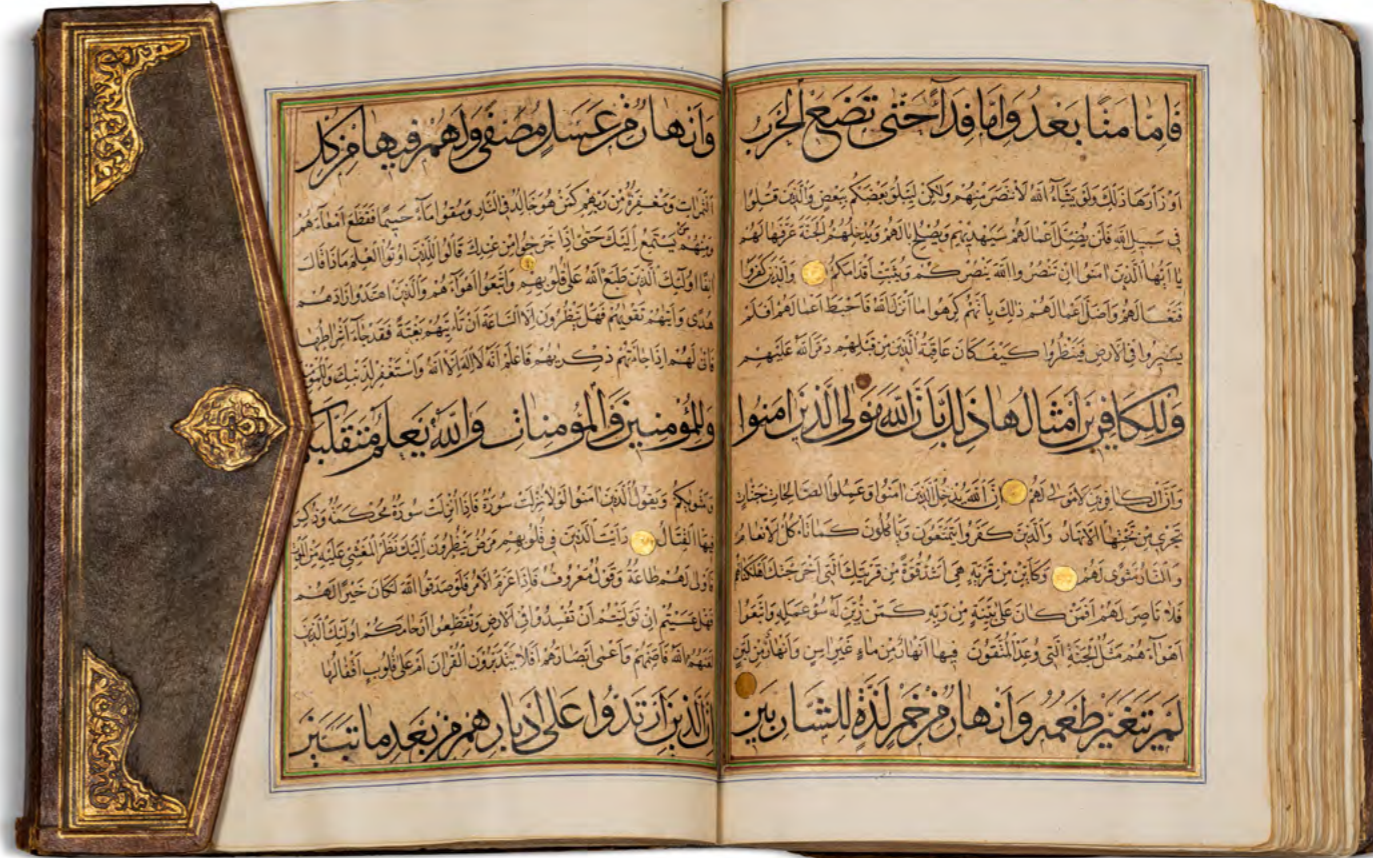 فَامَّا مَنًّا بَعْدُ وَاِمَّا فِدَآءً حَتّٰى تَضَعَ الْحَرْبُ
اَوْزَارَهَا ذٰلِكَ وَلَوْ يَشَآءُ اللهُ لَانْتَصَرَ مِنْهُمْ وَلٰكِنْ لِيَبْلُوَ بَعْضَكُمْ بِبَعْضٍ وَالَّذِينَ قُتِلُوا
فِي سَبِيلِ اللهِ فَلَنْ يُضِلَّ اَعْمَالَهُمْ سَيَهْدِيهِمْ وَيُصْلِحُ بَالَهُمْ وَيُدْخِلُهُمُ الْجَنَّةَ عَرَّفَهَا لَهُمْ
يَا اَيُّهَا الَّذِينَ اٰمَنُوا اِنْ تَنْصُرُوا اللهَ يَنْصُرْكُمْ وَيُثَبِّتْ اَقْدَامَكُمْ وَالَّذِينَ كَفَرُوا
فَتَعْسًا لَهُمْ وَاَضَلَّ اَعْمَالَهُمْ ذٰلِكَ بِاَنَّهُمْ كَرِهُوا مَا اَنْزَلَ اللهُ فَاَحْبَطَ اَعْمَالَهُمْ اَفَلَمْ
يَسِيرُوا فِي الْاَرْضِ فَيَنْظُرُوا كَيْفَ كَانَ عَاقِبَةُ الَّذِينَ مِنْ قَبْلِهِمْ دَمَّرَ اللهُ عَلَيْهِمْ
وَلِلْكَافِرِينَ اَمْثَالُهَا ذٰلِكَ بِاَنَّ اللهَ مَوْلَى الَّذِينَ اٰمَنُوا
وَاَنَّ الْكَافِرِينَ لَا مَوْلٰى لَهُمْ اِنَّ اللهَ يُدْخِلُ الَّذِينَ اٰمَنُوا وَعَمِلُوا الصَّالِحَاتِ جَنَّاتٍ
تَجْرِي مِنْ تَحْتِهَا الْاَنْهَارُ وَالَّذِينَ كَفَرُوا يَتَمَتَّعُونَ وَيَاْكُلُونَ كَمَا تَاْكُلُ الْاَنْعَامُ
وَالنَّارُ مَثْوًى لَهُمْ وَكَاَيِّنْ مِنْ قَرْيَةٍ هِيَ اَشَدُّ قُوَّةً مِنْ قَرْيَتِكَ الَّتِي اَخْرَجَتْكَ اَهْلَكْنَاهُمْ
فَلَا نَاصِرَ لَهُمْ اَفَمَنْ كَانَ عَلٰى بَيِّنَةٍ مِنْ رَبِّهِ كَمَنْ زُيِّنَ لَهُ سُوٓءُ عَمَلِهِ وَاتَّبَعُوا
اَهْوَآءَهُمْ مَثَلُ الْجَنَّةِ الَّتِي وُعِدَ الْمُتَّقُونَ فِيهَا اَنْهَارٌ مِنْ مَآءٍ غَيْرِ اٰسِنٍ وَاَنْهَارٌ مِنْ لَبَنٍ
لَمْ يَتَغَيَّرْ طَعْمُهُ وَاَنْهَارٌ مِنْ خَمْرٍ لَذَّةٍ لِلشَّارِبِينَ
وَاَنْهَارٌ مِنْ عَسَلٍ مُصَفًّى وَلَهُمْ فِيهَا مِنْ كُلِّ
الثَّمَرَاتِ وَمَغْفِرَةٌ مِنْ رَبِّهِمْ كَمَنْ هُوَ خَالِدٌ فِي النَّارِ وَسُقُوا مَآءً حَمِيمًا فَقَطَّعَ اَمْعَآءَهُمْ
وَمِنْهُمْ مَنْ يَسْتَمِعُ اِلَيْكَ حَتّٰى اِذَا خَرَجُوا مِنْ عِنْدِكَ قَالُوا لِلَّذِينَ اُوتُوا الْعِلْمَ مَاذَا قَالَ
اٰنِفًا اُولٰئِكَ الَّذِينَ طَبَعَ اللهُ عَلٰى قُلُوبِهِمْ وَاتَّبَعُوا اَهْوَآءَهُمْ وَالَّذِينَ اهْتَدَوْا زَادَهُمْ
هُدًى وَاٰتٰيهُمْ تَقْوٰيهُمْ فَهَلْ يَنْظُرُونَ اِلَّا السَّاعَةَ اَنْ تَاْتِيَهُمْ بَغْتَةً فَقَدْ جَآءَ اَشْرَاطُهَا
فَاَنّٰى لَهُمْ اِذَا جَآءَتْهُمْ ذِكْرٰيهُمْ فَاعْلَمْ اَنَّهُ لَا اِلٰهَ اِلَّا اللهُ وَاسْتَغْفِرْ لِذَنْبِكَ
وَلِلْمُؤْمِنِينَ وَالْمُؤْمِنَاتِ وَاللهُ يَعْلَمُ مُتَقَلَّبَكُمْ
وَمَثْوٰيكُمْ وَيَقُولُ الَّذِينَ اٰمَنُوا لَوْلَا نُزِّلَتْ سُورَةٌ فَاِذَا اُنْزِلَتْ سُورَةٌ مُحْكَمَةٌ وَذُكِرَ
فِيهَا الْقِتَالُ رَاَيْتَ الَّذِينَ فِي قُلُوبِهِمْ مَرَضٌ يَنْظُرُونَ اِلَيْكَ نَظَرَ الْمَغْشِيِّ عَلَيْهِ مِنَ الْمَوْتِ
فَاَوْلٰى لَهُمْ طَاعَةٌ وَقَوْلٌ مَعْرُوفٌ فَاِذَا عَزَمَ الْاَمْرُ فَلَوْ صَدَقُوا اللهَ لَكَانَ خَيْرًا لَهُمْ
فَهَلْ عَسَيْتُمْ اِنْ تَوَلَّيْتُمْ اَنْ تُفْسِدُوا فِي الْاَرْضِ وَتُقَطِّعُوا اَرْحَامَكُمْ اُولٰئِكَ الَّذِينَ
لَعَنَهُمُ اللهُ فَاَصَمَّهُمْ وَاَعْمٰى اَبْصَارَهُمْ اَفَلَا يَتَدَبَّرُونَ الْقُرْاٰنَ اَمْ عَلٰى قُلُوبٍ اَقْفَالُهَا
اِنَّ الَّذِينَ ارْتَدُّوا عَلٰى اَدْبَارِهِمْ مِنْ بَعْدِ مَا تَبَيَّنَ